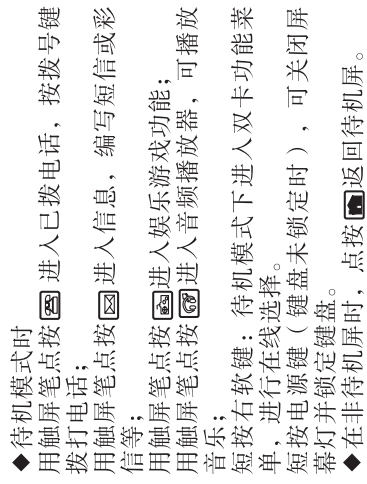 ◆待机模式时
用触屏笔点按进入已拨电话，按拨号键
拨打电话；
用触屏笔点按进入信息，编写短信或彩
信等；
用触屏笔点按进入娱乐游戏功能；
用触屏笔点按进入音频播放器，可播放
音乐；
短按右软键：待机模式下进入双卡功能菜
单，进行在线选择。
短按电源键（键盘未锁定时），可关闭屏
幕灯并锁定键盘。
◆在非待机屏时，点按返回待机屏。